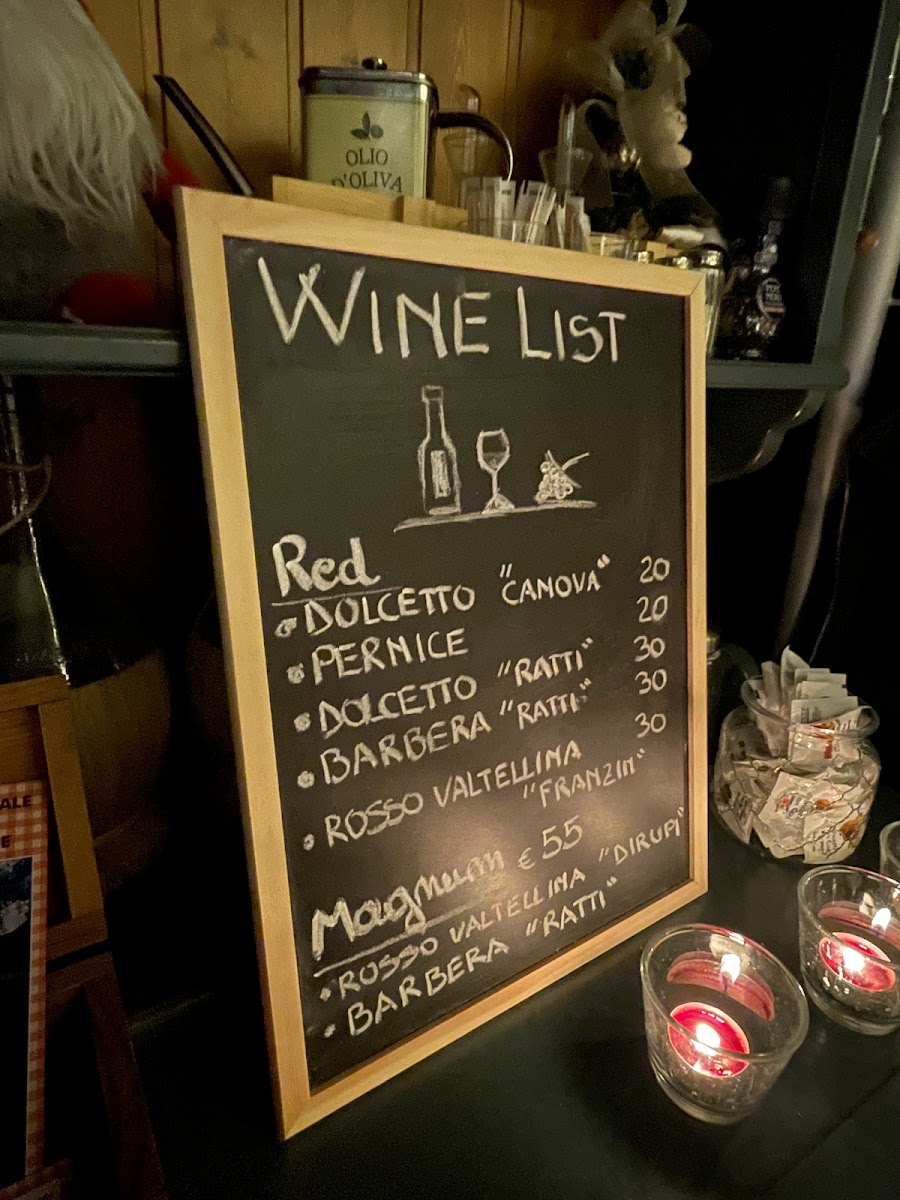 OLIO
D'OLIVA
WINE LIST
Red
• DOLCETTO "CANOVA" 20
• PERNICE 20
• DOLCETTO "RATTI" 30
• BARBERA "RATTI" 30
• ROSSO VALTELLINA 30
"FRANZIN"
Magnum € 55
• ROSSO VALTELLINA "DIRUPI"
• BARBERA "RATTI"
ALE
E